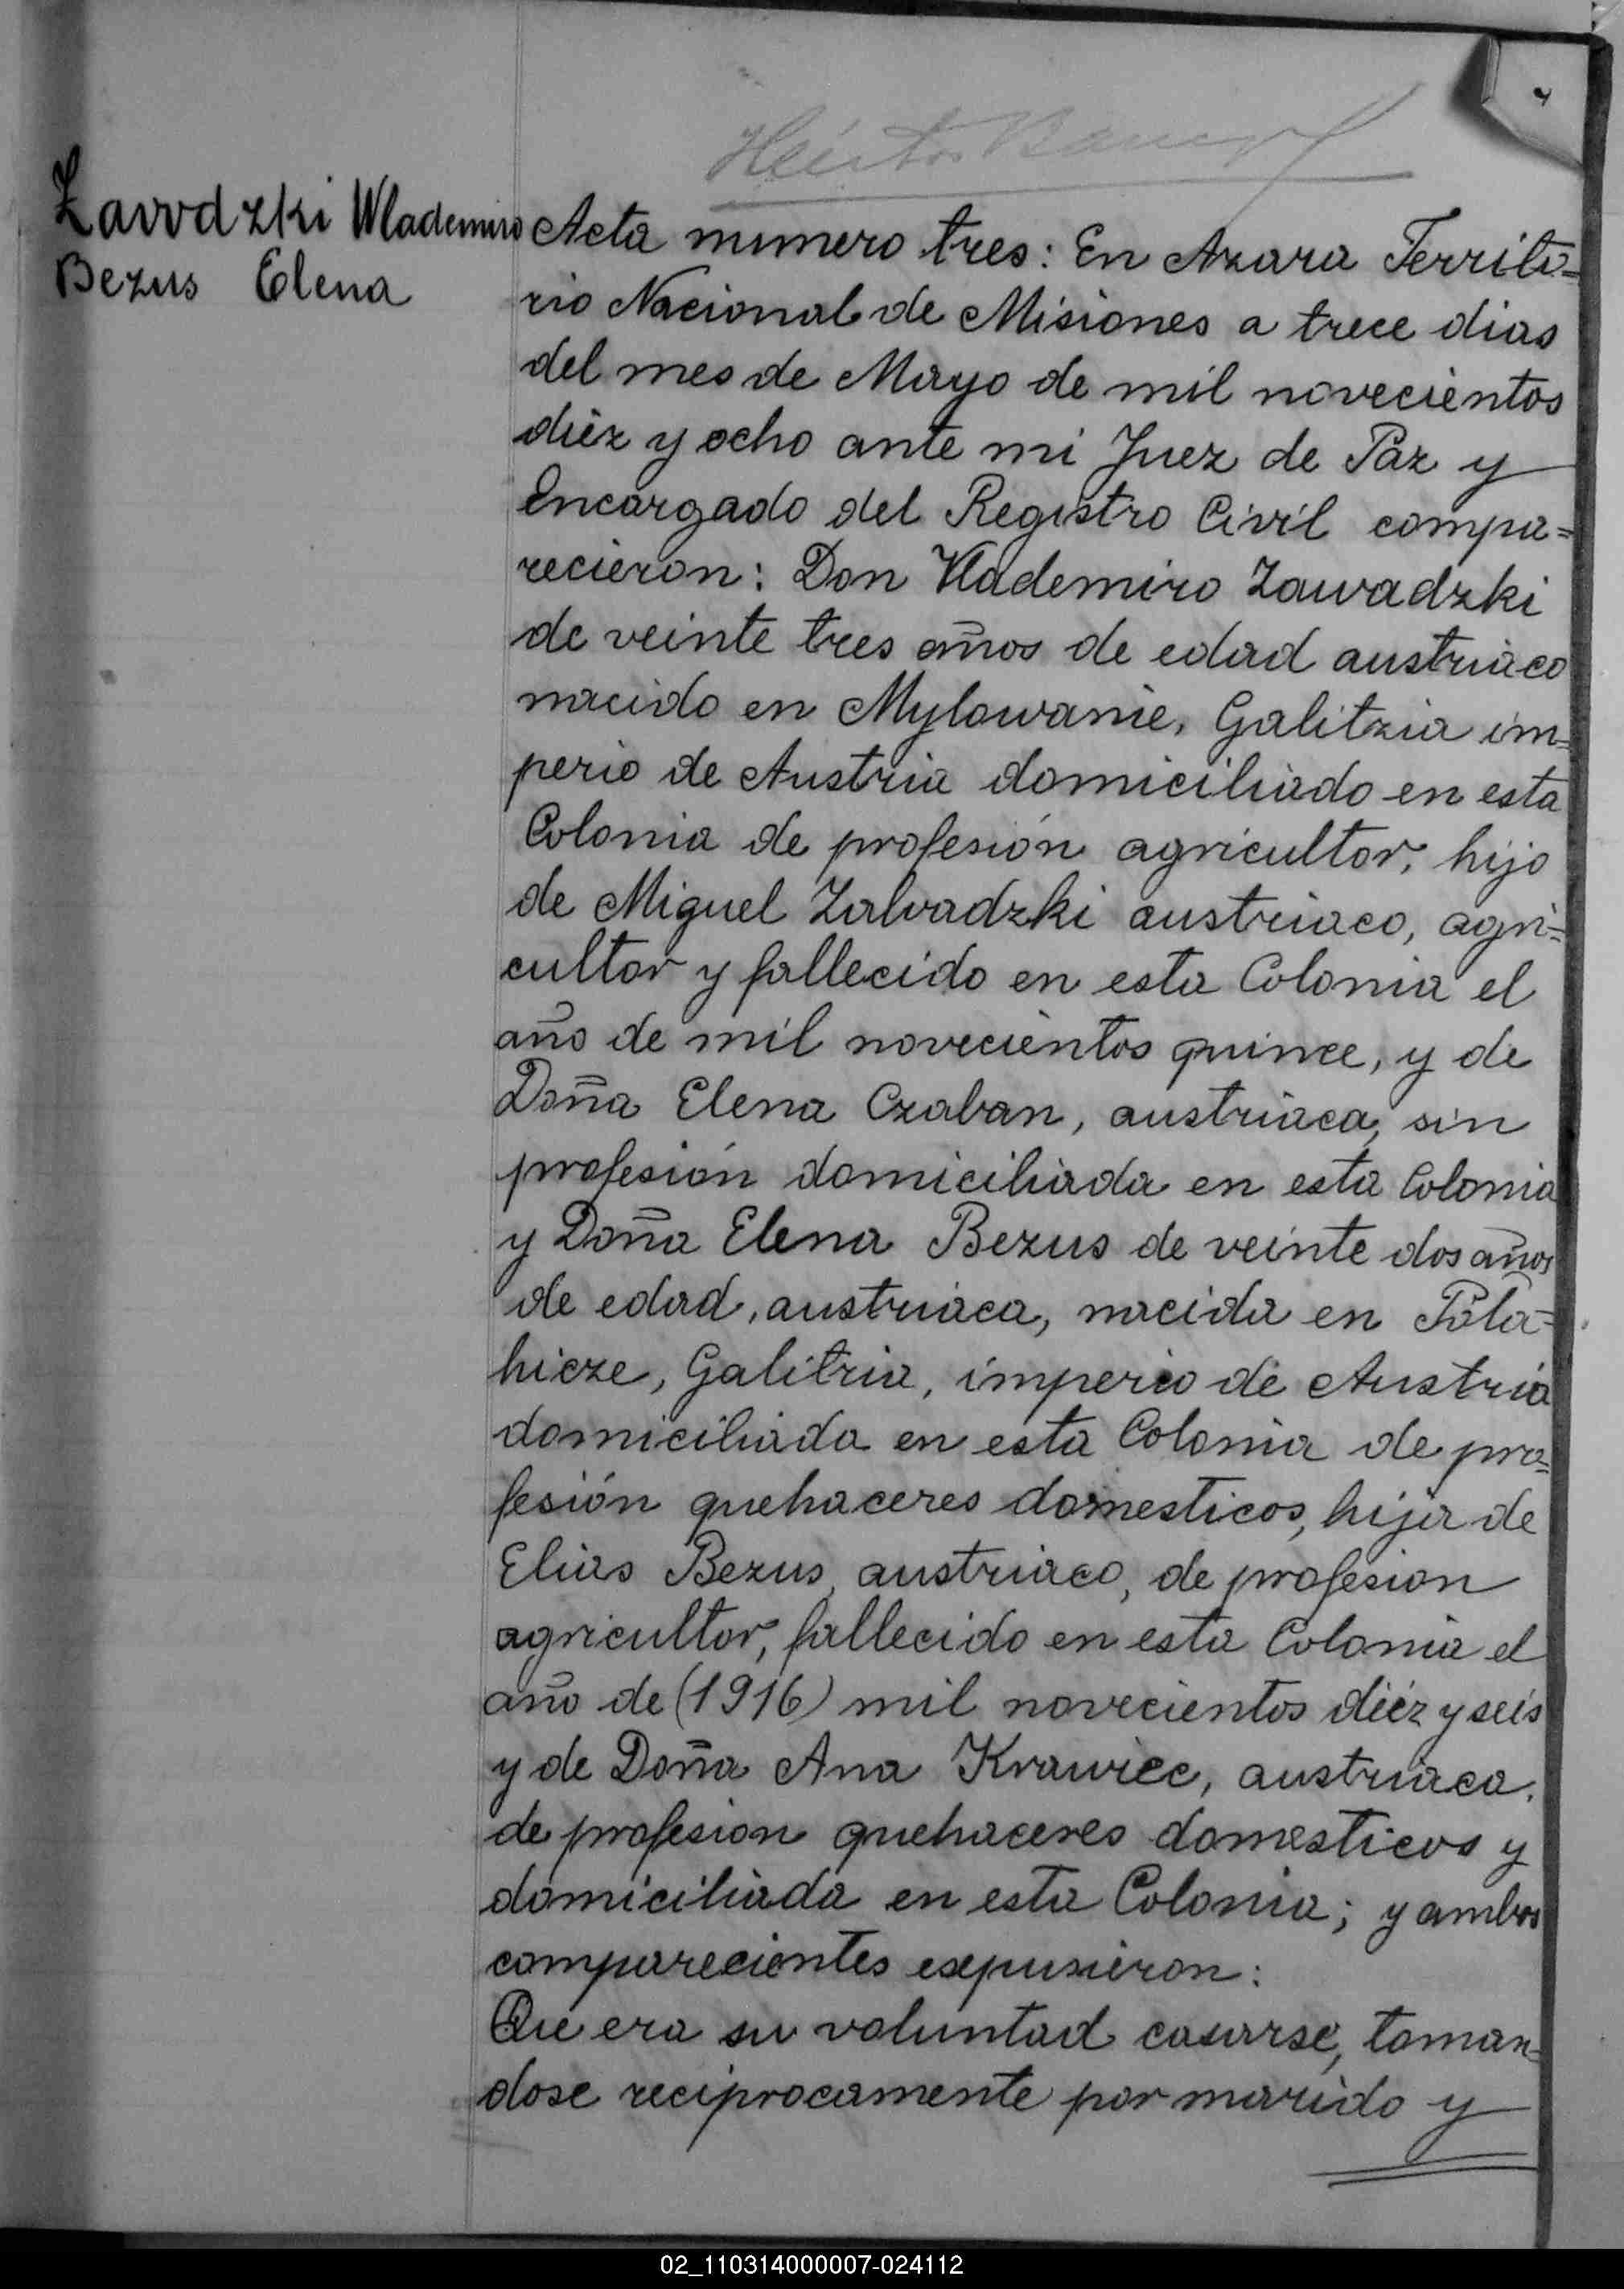 Zavvdzki Wlademiro
Bezus Elena
Acta numero tres: En Azara Territo=
rio Nacional de Misiones a trece dias
del mes de Mayo de mil novecientos
diéz y ocho ante mi Juez de Paz y
Encargado del Registro Civil compa=
recieron: Don Vlademiro Zawadzki
de veinte tres años de edad austriaco
nacido en Mylowanie, Galitzia im=
perio de Austria domiciliado en esta
Colonia de profesión agricultor, hijo
de Miguel Zalvadzki austriaco, agri=
cultor y fallecido en esta Colonia el
año de mil novecientos quince, y de
Doña Elena Czaban, austriaca, sin
profesión domiciliada en esta Colonia
y Doña Elena Bezus de veinte dos años
de edad, austriaca, nacida en Pala=
hicze, Galitzia, imperio de Austria
domiciliada en esta Colonia de pro=
fesión quehaceres domesticos, hija de
Elias Bezus, austriaco, de profesion
agricultor, fallecido en esta Colonia el
año de (1916) mil novecientos diéz y seis
y de Doña Ana Krawiec, austriaca,
de profesion quehaceres domesticos y
domiciliada en esta Colonia; y ambos
comparecientes expusieron:
Que era su voluntad casarse, toman=
dose reciprocamente por marido y
02_110314000007-024112